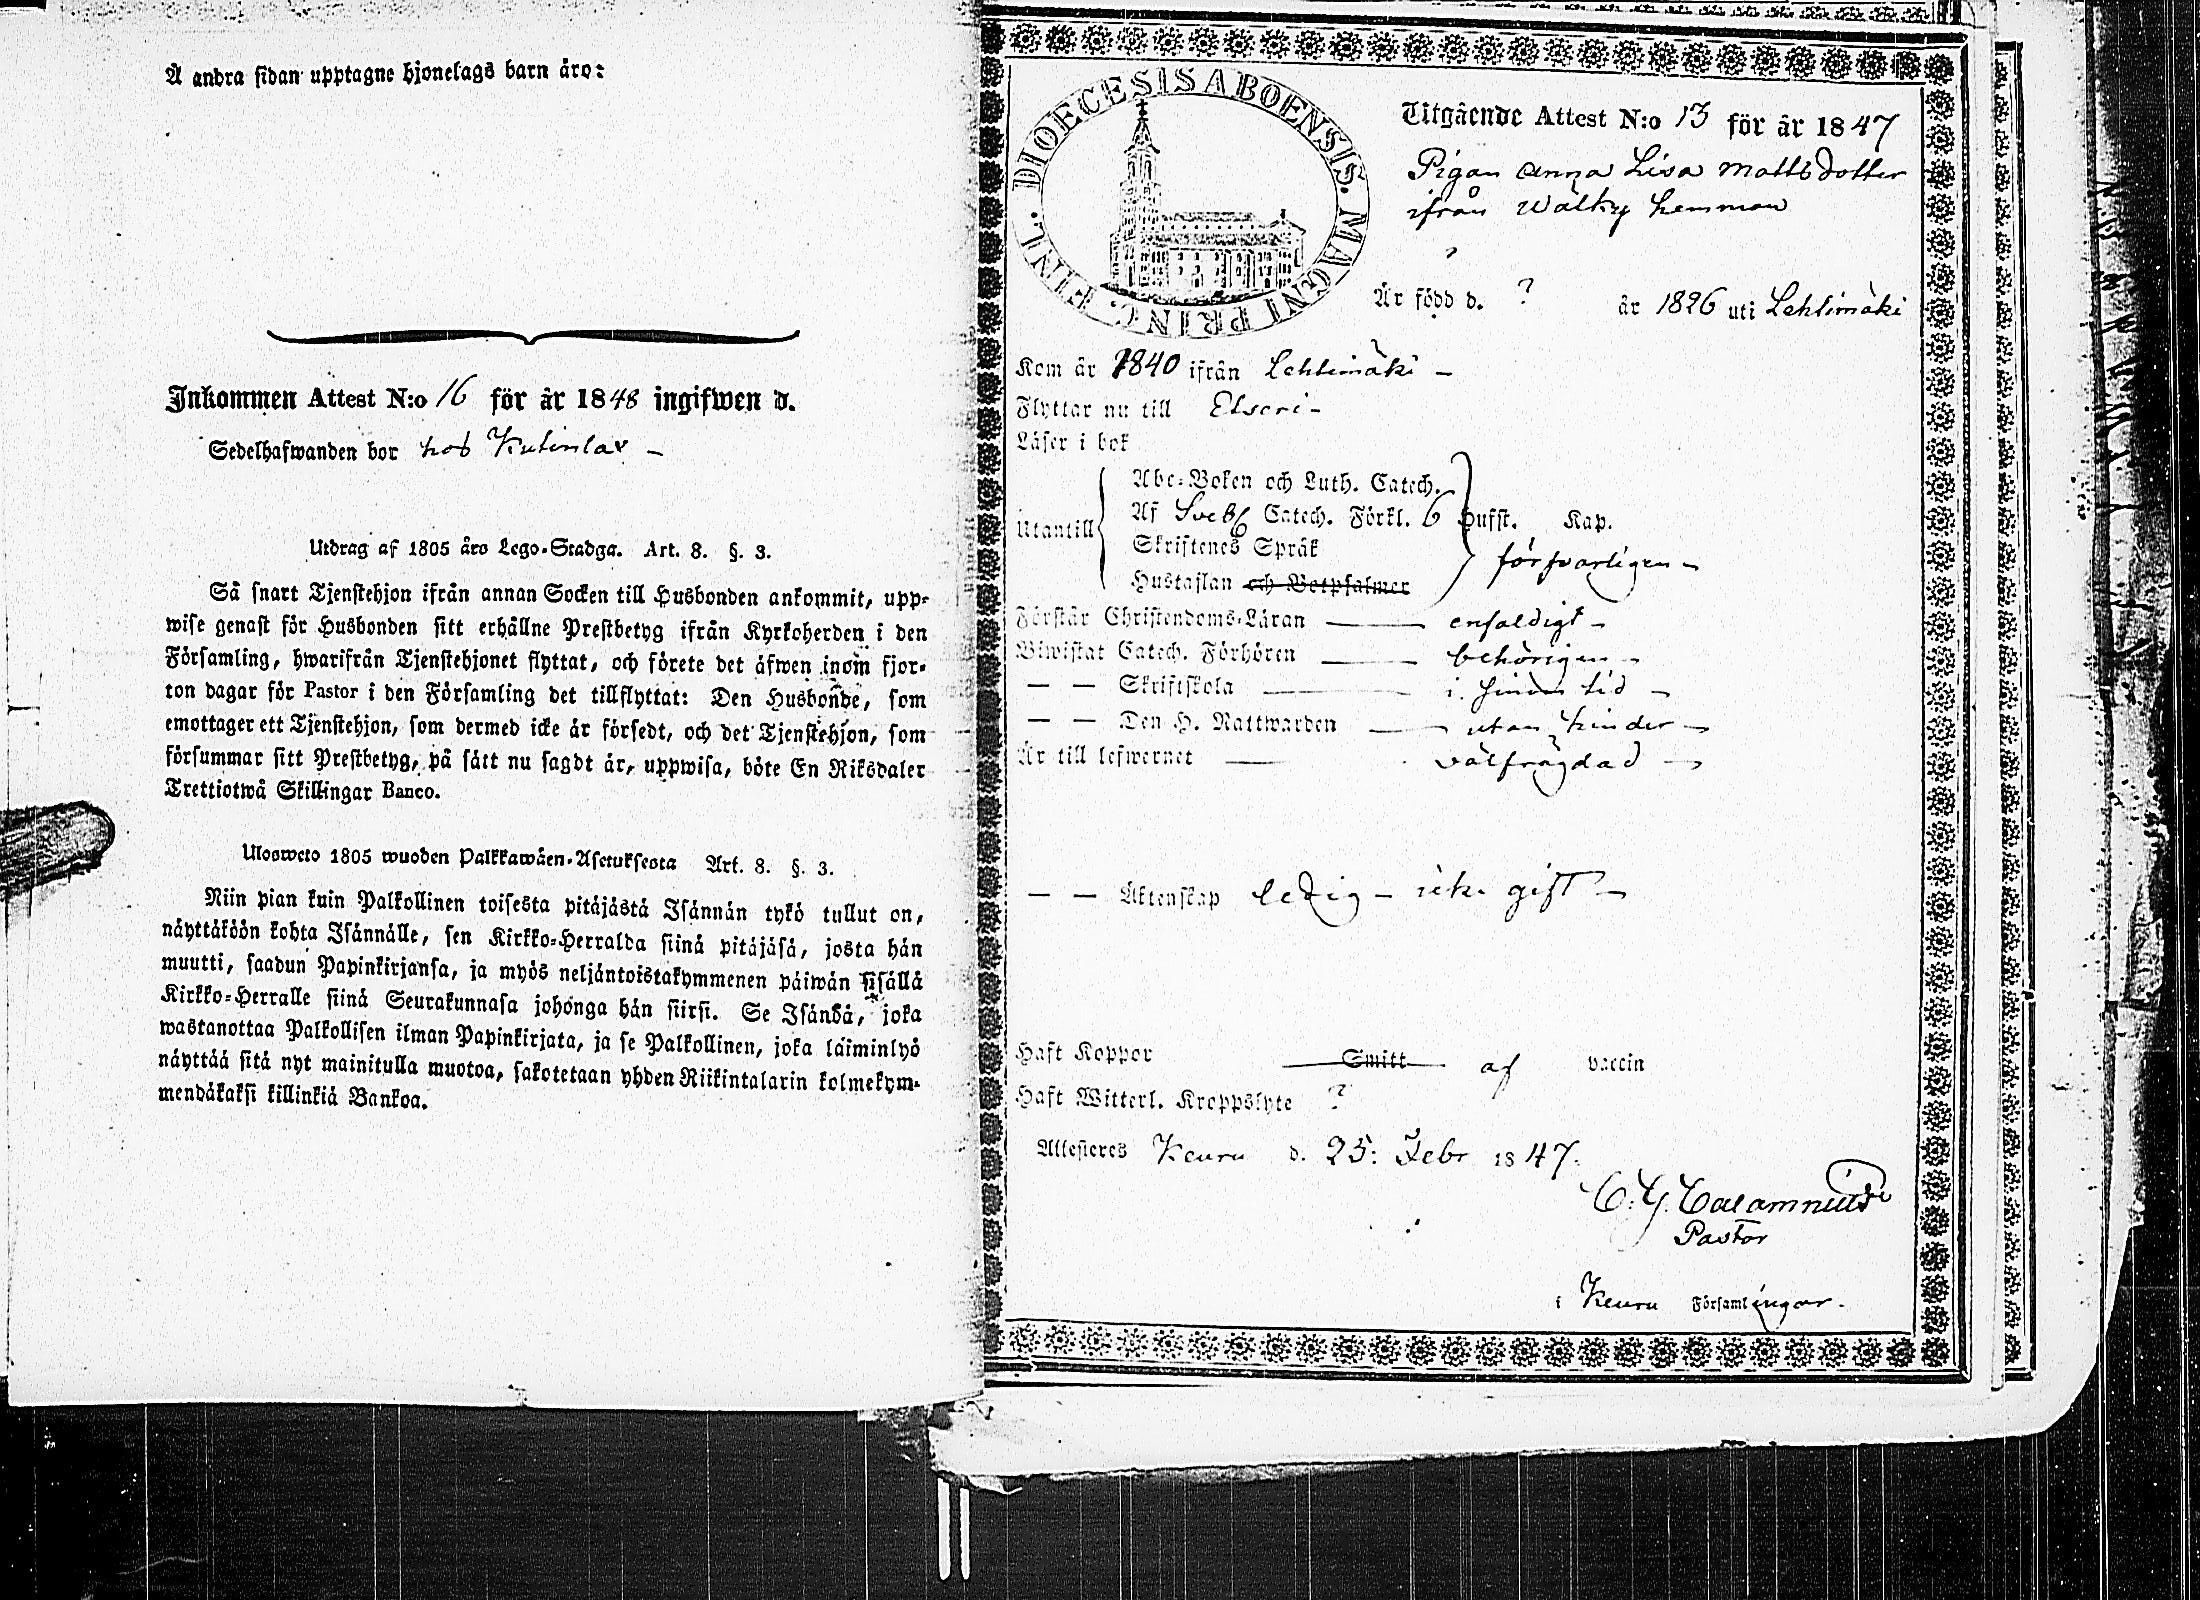 Å andra sidan upptagne hjonelags barn äro:
Inkommen Attest N:o 16 för år 1848 ingifwen d.
Sedelhafwanden bor hos
Utdrag af 1805 års Lego-Stadga. Art. 8. §. 3.
Så snart Tjenstehjon ifrån annan Socken till Husbonden ankommit, upp-
wise genast för Husbonden sitt erhållne Prestbetyg ifrån Kyrkoherden i den
Församling, hwarifrån Tjenstehjonet flyttat, och förete det äfwen inom fjor-
ton dagar för Pastor i den Församling det tillflyttat: Den Husbonde, som
emottager ett Tjenstehjon, som dermed icke är försedt, och det Tjenstehjon, som
försummar sitt Prestbetyg, på sätt nu sagdt är, uppwisa, böte En Riksdaler
Trettiotwå Skillingar Banco.
Ulosweto 1805 wuoden Palkkawäen-Asetuksesta Art. 8. §. 3.
Niin pian kuin Palkollinen toisesta pitäjästä Isännän tykö tullut on,
näyttäköön kohta Isännälle, sen Kirkko-Herralda siinä pitäjäsä, josta hän
muutti, saadun Papinkirjansa, ja myös neljäntoistakymmenen päiwän sisällä
Kirkko-Herralle siinä Seurakunnasa johonga hän siirsi. Se Isändä, joka
wastanottaa Palkollisen ilman Papinkirjata, ja se Palkollinen, joka laiminlyö
näyttää sitä nyt mainitulla muotoa, sakotetaan yhden Riikintalarin kolmekym-
mendäkaksi killinkiä Bankoa.
DIOECESIS ABOENSIS. MAGNI PRINC. FINL.
Utgående Attest N:o 13 för år 1847
Pigan Anna Lisa Mattsdotter
ifrån Wälky hemman
Är född d. ? år 1826 uti Lehtimäki
Kom år 1840 ifrån Lehtimäki –
Flyttar nu till Etseri –
Läser i bok
Utantill
Abc-Boken och Luth. Catech.
Af Sveb. Catech. Förkl. 6 Hufst. Kap.
Skriftenes Språk
försvarligen –
Hustaflan och Botpsalmer
Förstår Christendoms-Läran — enfaldigt –
Biwistat Catech. Förhören — behörigen –
— — Skriftskola — i sinom tid –
— — Den H. Nattwarden — utan hinder –
Är till lefwernet — välfrägdad –
— — Äktenskap ledig – icke gift –
Haft Koppor Smitt af vaccin
Haft Witterl. Kroppslyte ?
Attesteres Keuru d. 25: Febr 1847.
C. G. Calamnius
Pastor
i Keuru Församlingar.